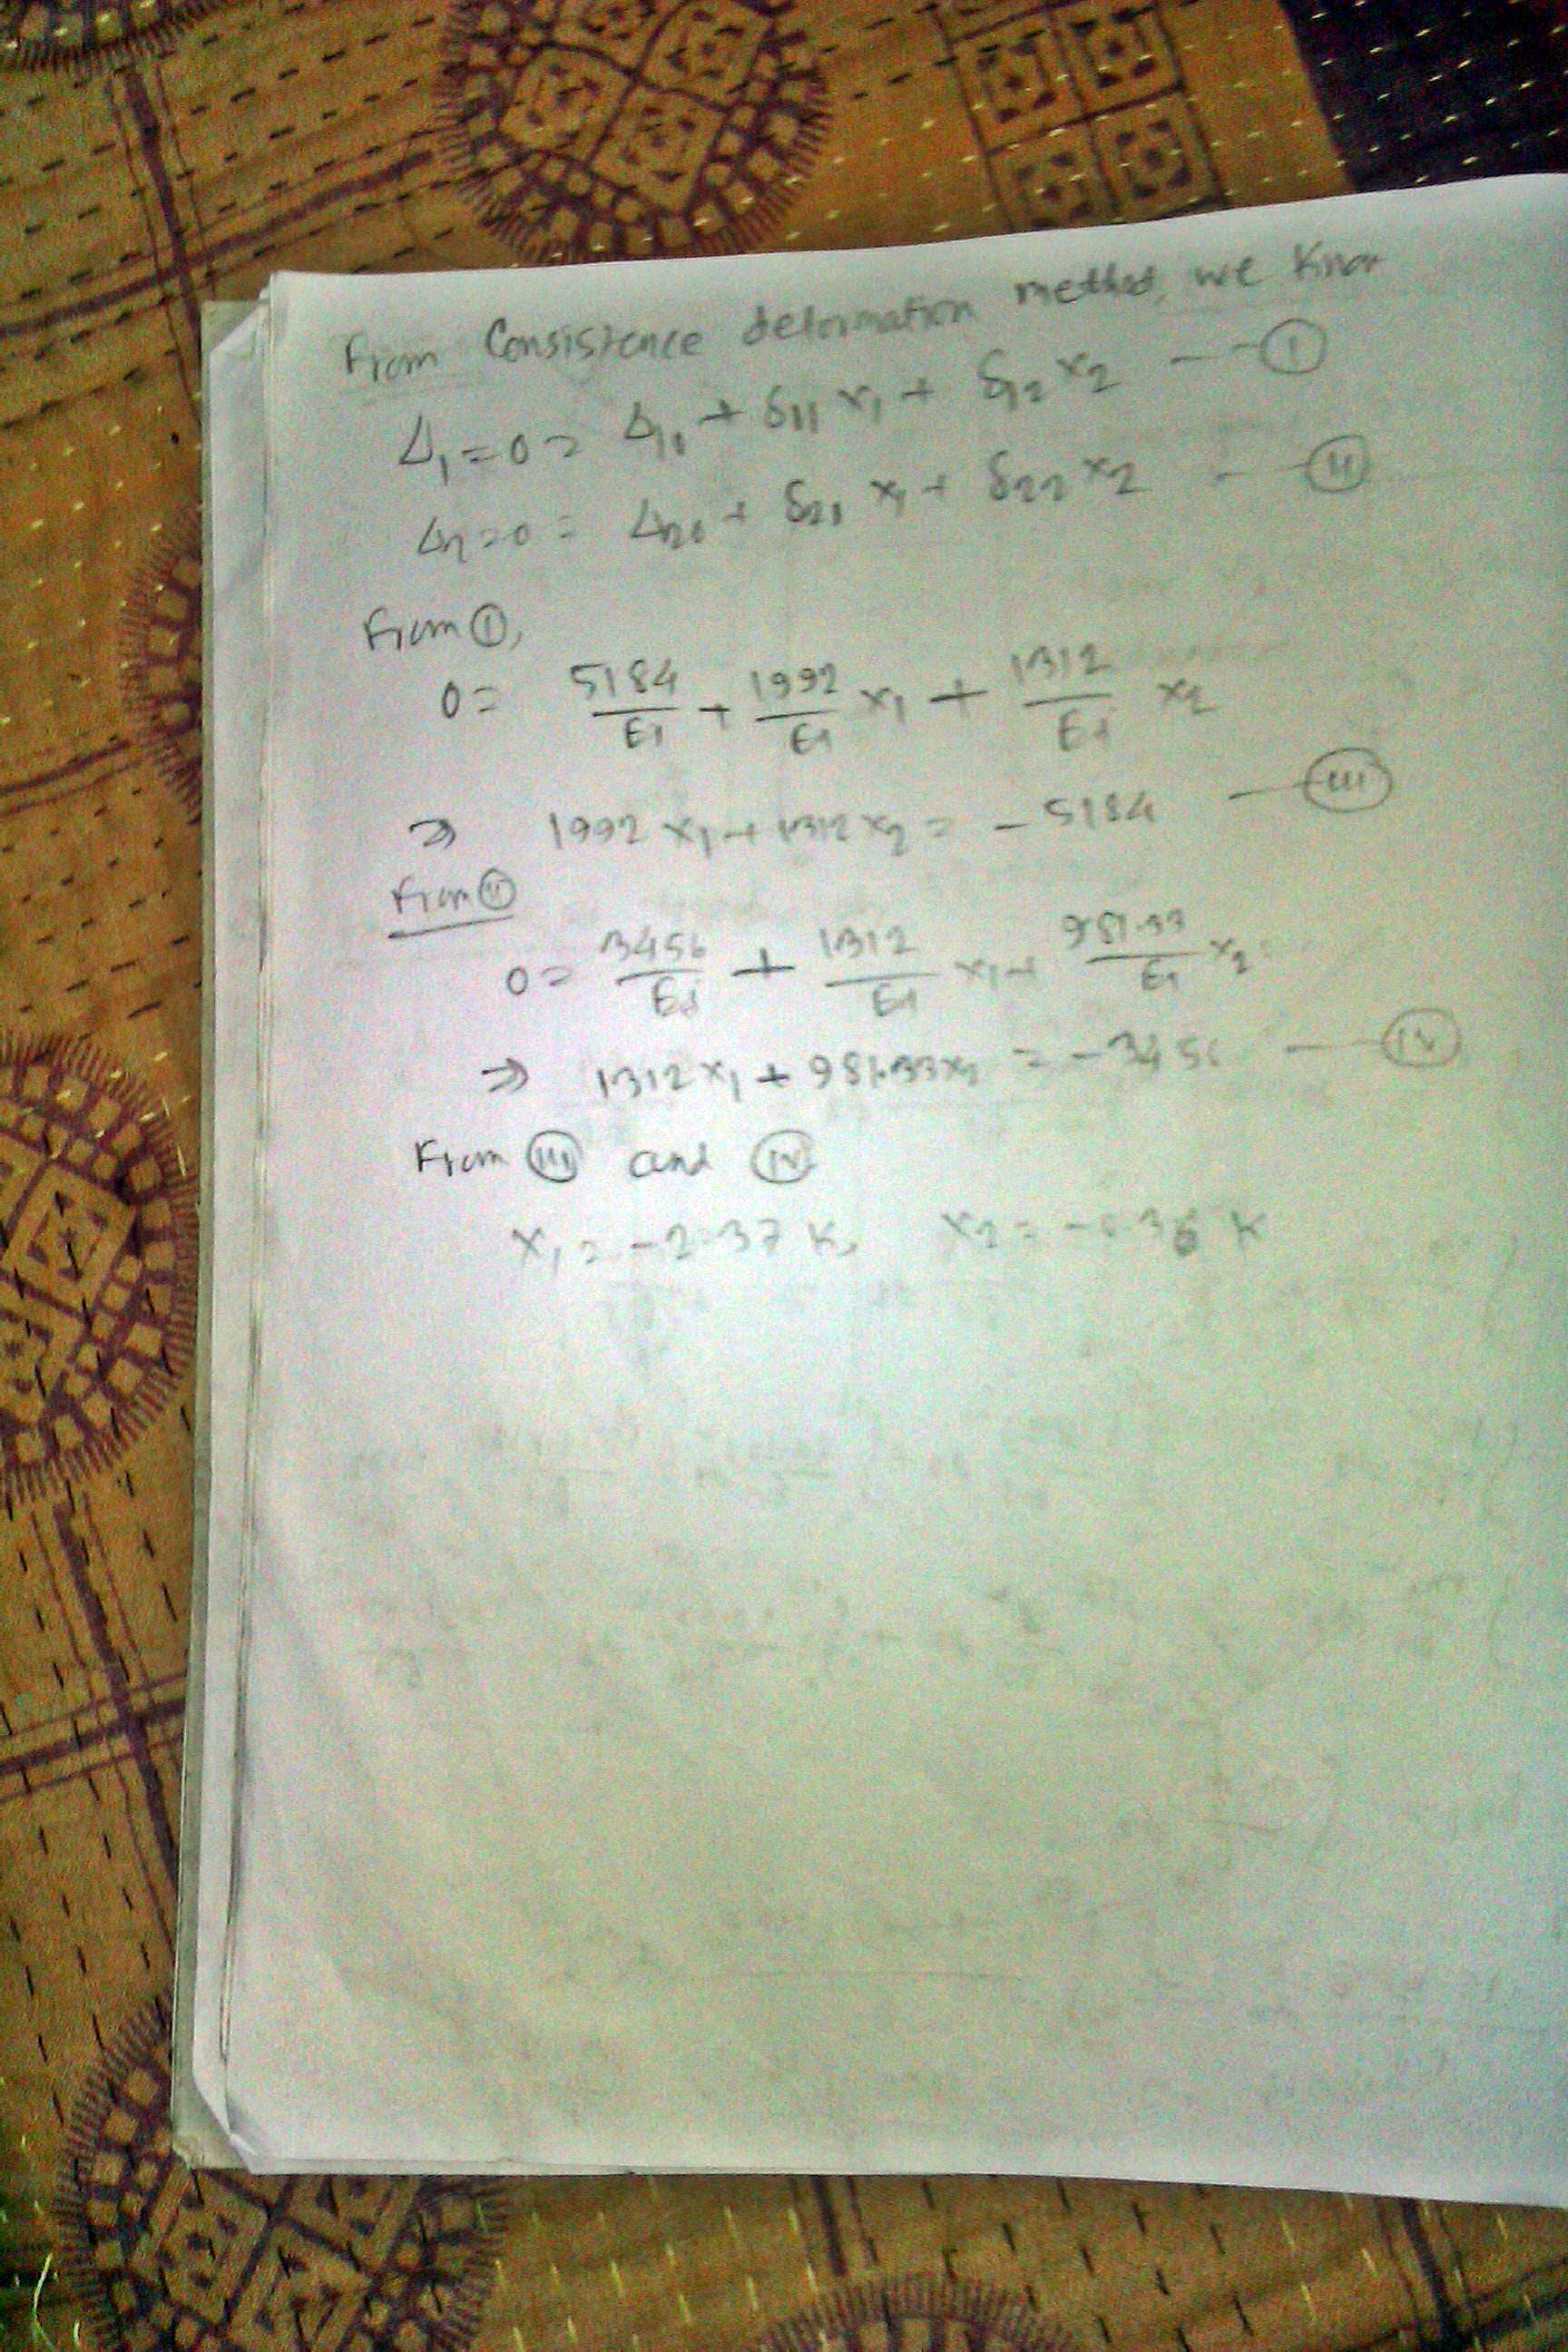 From Consistence deformation method, we know
Δ₁ = 0 = Δ₁₀ + δ₁₁ x₁ + δ₁₂ x₂ — (I)
Δ₂ = 0 = Δ₂₀ + δ₂₁ x₁ + δ₂₂ x₂ — (II)
From (I),
0 = 5184/EI + 1992/EI x₁ + 1312/EI x₂
⇒ 1992 x₁ + 1312 x₂ = - 5184 — (III)
from (II)
0 = 3456/EI + 1312/EI x₁ + 981.33/EI x₂
⇒ 1312 x₁ + 981.33 x₂ = - 3456 — (IV)
From (III) and (IV)
x₁ = - 2.37 K, x₂ =